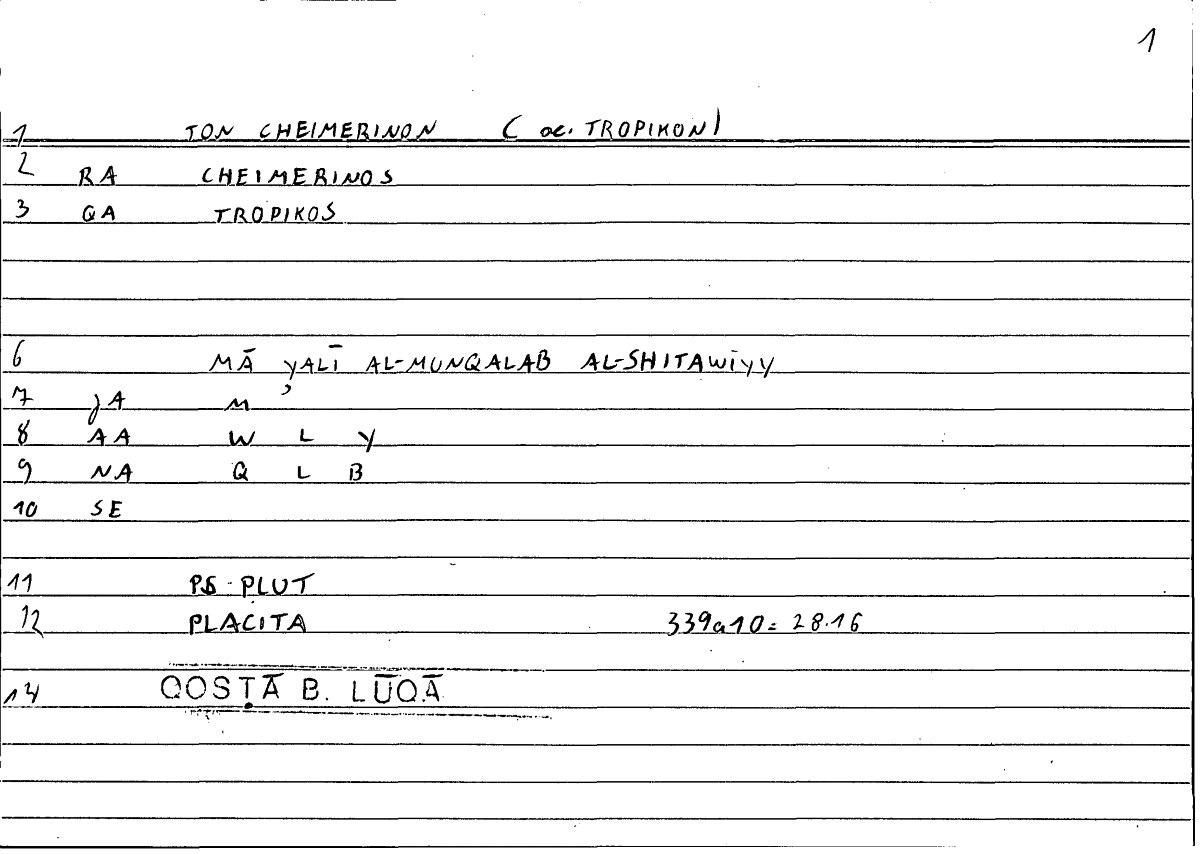 1
1 TON CHEIMERINON ( sc. TROPIKON)
2 RA CHEIMERINOS
3 QA TROPIKOS
6 MĀ YALĪ AL-MUNQALAB AL-SHITAWĪYY
7 JA M ʾ
8 AA W L Y
9 NA Q L B
10 SE
11 PS-PLUT
12 PLACITA 339a10 = 28.16
14 QOSṬĀ B. LŪQĀ